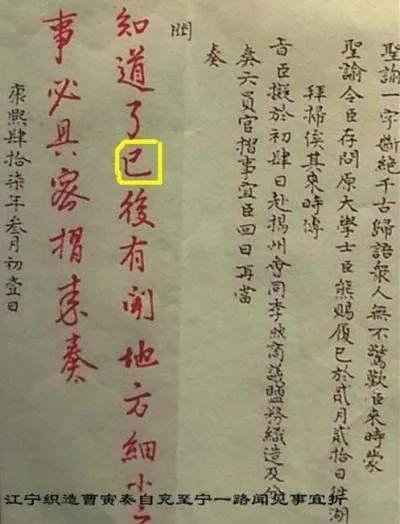 聖諭一字斷絕千古歸語衆人無不驚歎臣來時蒙
聖諭令臣存問原大學士臣熊賜履已於貳月貳拾日往湖
拜掃俟其來時傳
旨臣擬於初肆日赴揚州會同李煦商議鹽務織造及
奏六員官摺事宜臣回日再當
奏
知道了已後有聞地方細小之
事必具密摺來奏
康熙肆拾柒年叁月初壹日
江宁织造曹寅奏自兖至宁一路闻见事宜折